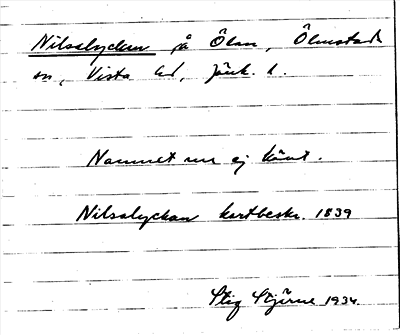 Nilsalyckan på Ölan, Ölmstad
sn, Vista hd, Jönk. l.
Namnet nu ej känt.
Nilsalyckan kartbeskr. 1839
Stig Stjärne 1934.